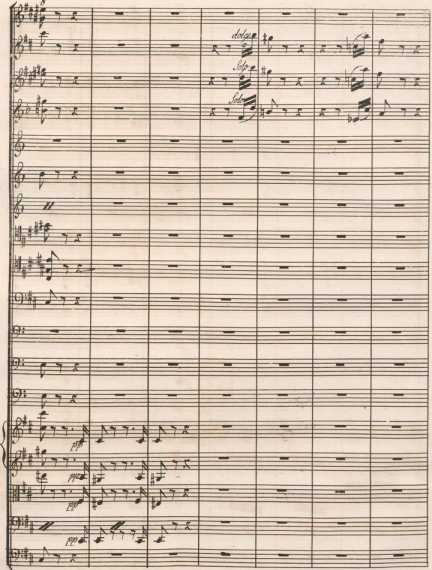 dolce
Solo
Solo
ppp
ppp
ppp
ppp